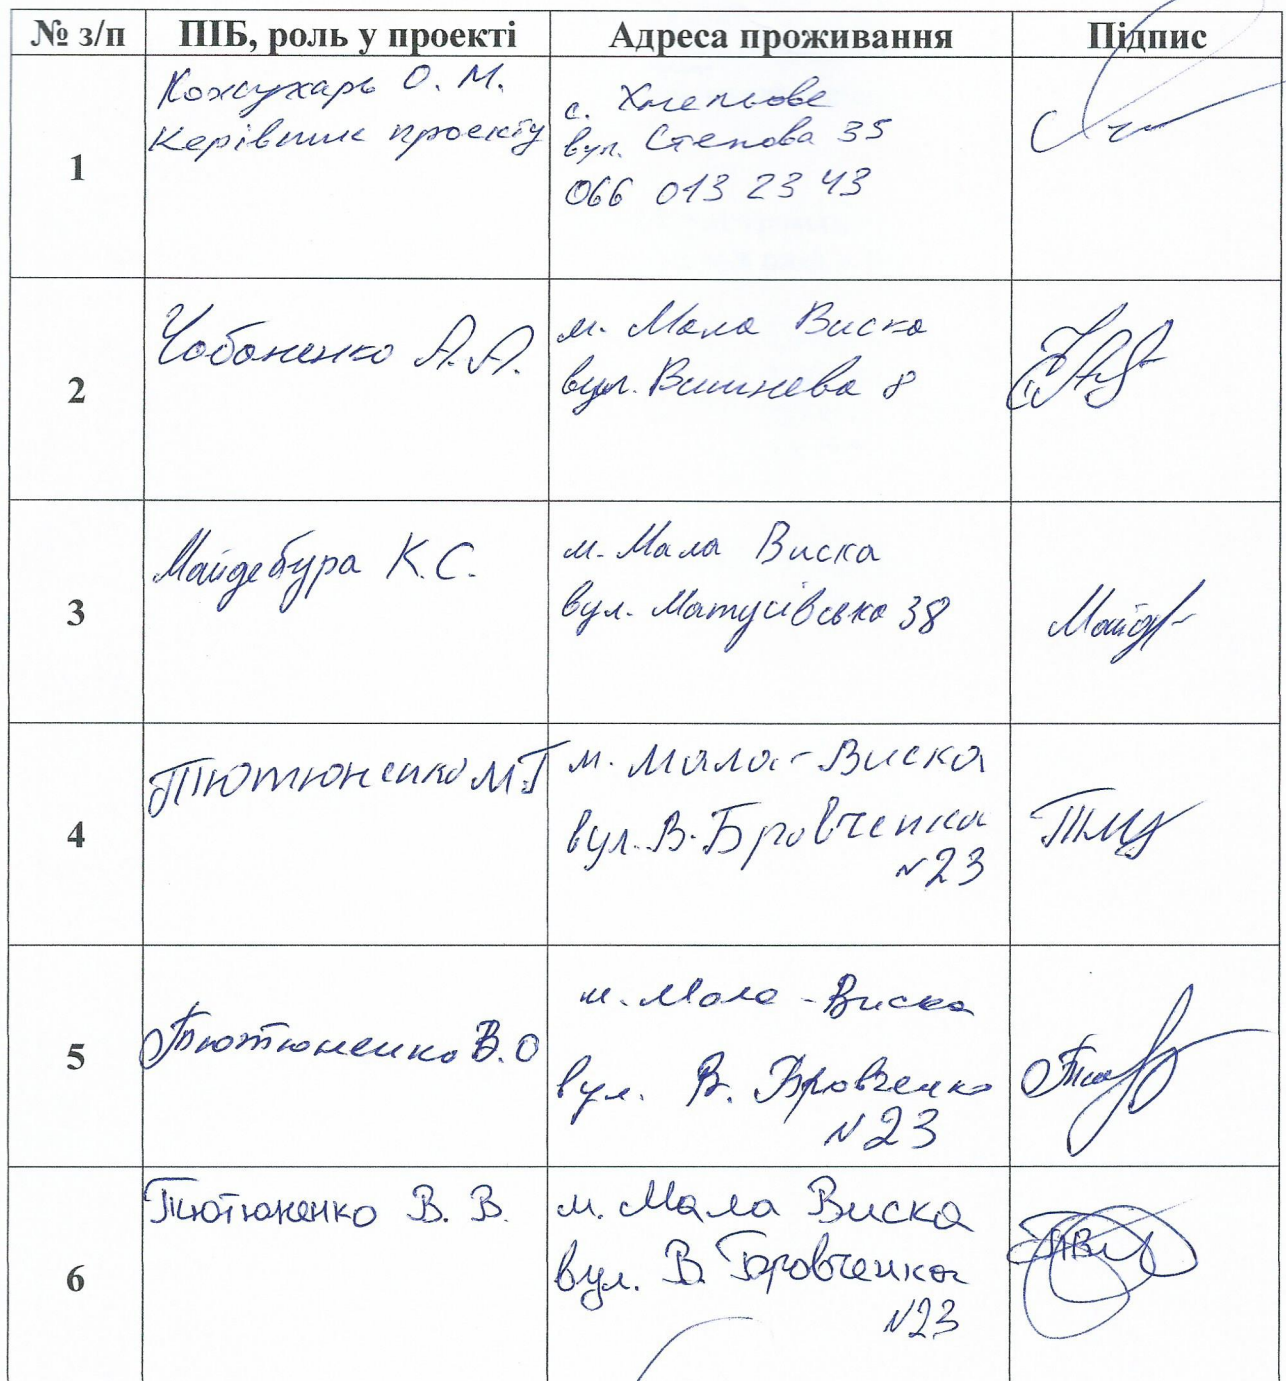 № з/п ПІБ, роль у проекті Адреса проживання Підпис
1
Кожухарь О. М.
Керівник проекту
с. Хмельове
вул. Степова 35
066 013 23 43
2
Чобаненко А.А.
м. Мала Виска
вул. Вишнева 8
3
Майдебура К.С.
м. Мала Виска
вул. Матусівська 38
Майд
4
Тютюненко М.Г
м. Мала-Виска
вул. В. Бровченка
№23
5
Тютюненко В.О
м. Мала-Виска
вул. В. Бровченка
№23
6
Тютюненко В. В.
м. Мала Виска
вул. В. Бровченка
№23